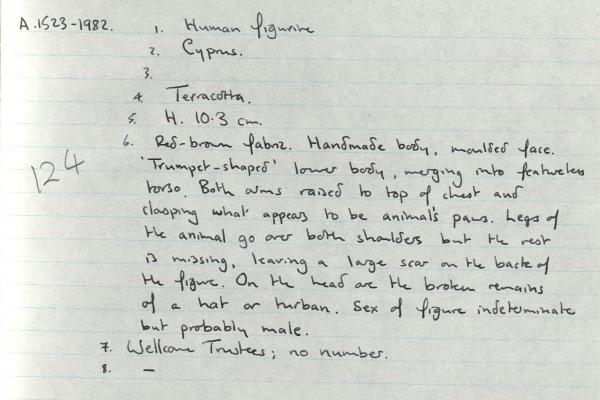 A.1523-1982. 1. Human figurine
2. Cyprus.
3.
4. Terracotta.
5. H. 10.3 cm.
6. Red-brown fabric. Handmade body, moulded face.
'Trumpet-shaped' lower body, merging into featureless
torso. Both arms raised to top of chest and
clasping what appears to be animal's paws. Legs of
the animal go over both shoulders but the rest
is missing, leaving a large scar on the back of
the figure. On the head are the broken remains
of a hat or turban. Sex of figure indeterminate
but probably male.
7. Wellcome Trustees; no number.
8. —
124